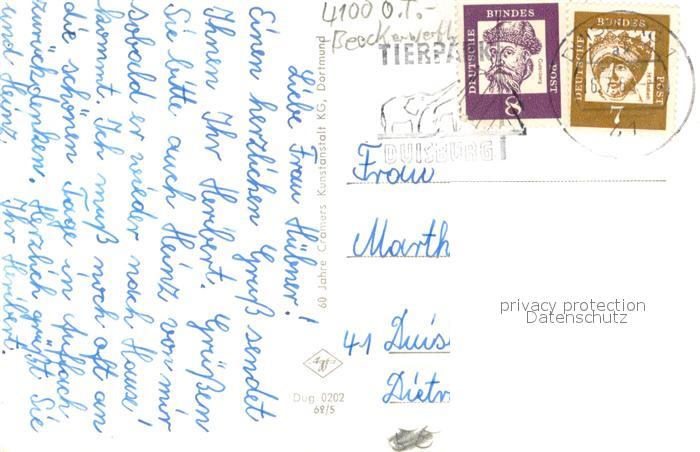 Liebe Frau Hübner!
Einen herzlichen Gruß sendet
Ihnen Ihr Heribert. Grüßen
Sie bitte auch Heinz von mir
sobald er wieder nach Hause
kommt. Ich muß noch oft an
die schönen Tage in Auffach
zurückdenken. Herzlich grüßt Sie
und Heinz Ihr Heribert.
60 Jahre Cramers Kunstanstalt KG, Dortmund
4100 O.T.-
-Beeckerwerth
TIERPARK
DUISBURG
DEUTSCHE BUNDES POST
8
DEUTSCHE BUNDES POST
7
41
Frau
Marth
41 Duis
Dietr
Agfa
Dug. 0202
68/5
privacy protection
Datenschutz